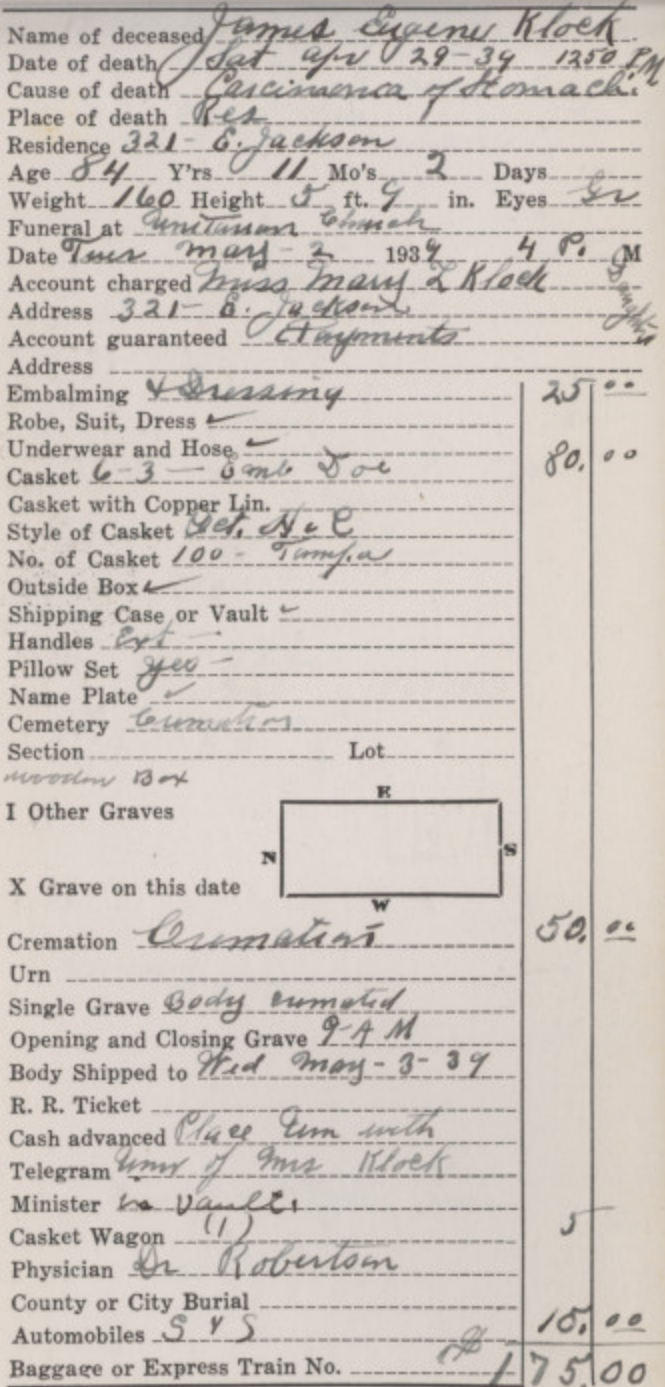 Name of deceased James Eugene Klock
Date of death Sat Apr 29-39 1250 PM
Cause of death Carcinomca of Stomach.
Place of death Res
Residence 321- E. Jackson
Age 84 Y'rs 11 Mo's 2 Days
Weight 160 Height 5 ft. 9 in. Eyes Gr
Funeral at Unitarian Church
Date Tues may - 2 1939 4 P. M
Account charged Miss Mary L Klock Daughter
Address 321- E. Jackson
Account guaranteed Payments
Address
Embalming & Dressing 25 00
Robe, Suit, Dress ✓
Underwear and Hose ✓
Casket 6-3 — Emb Doe 80. 00
Casket with Copper Lin.
Style of Casket Oct. H & C
No. of Casket 100 - Tampa
Outside Box ✓
Shipping Case or Vault ✓
Handles Ext -
Pillow Set yes -
Name Plate ✓
Cemetery Cremation
Section Lot
wooden Box
E
I Other Graves
N S
X Grave on this date
W
Cremation Cremation 50. 00
Urn
Single Grave Body cremated
Opening and Closing Grave 9 A M
Body Shipped to Wed May - 3 - 39
R. R. Ticket
Cash advanced Place Urn with
Telegram Urn of Mrs Klock
Minister in Vault.
Casket Wagon (1) 5
Physician Dr Robertson
County or City Burial
Automobiles S & S 15. 00
Baggage or Express Train No. 175.00